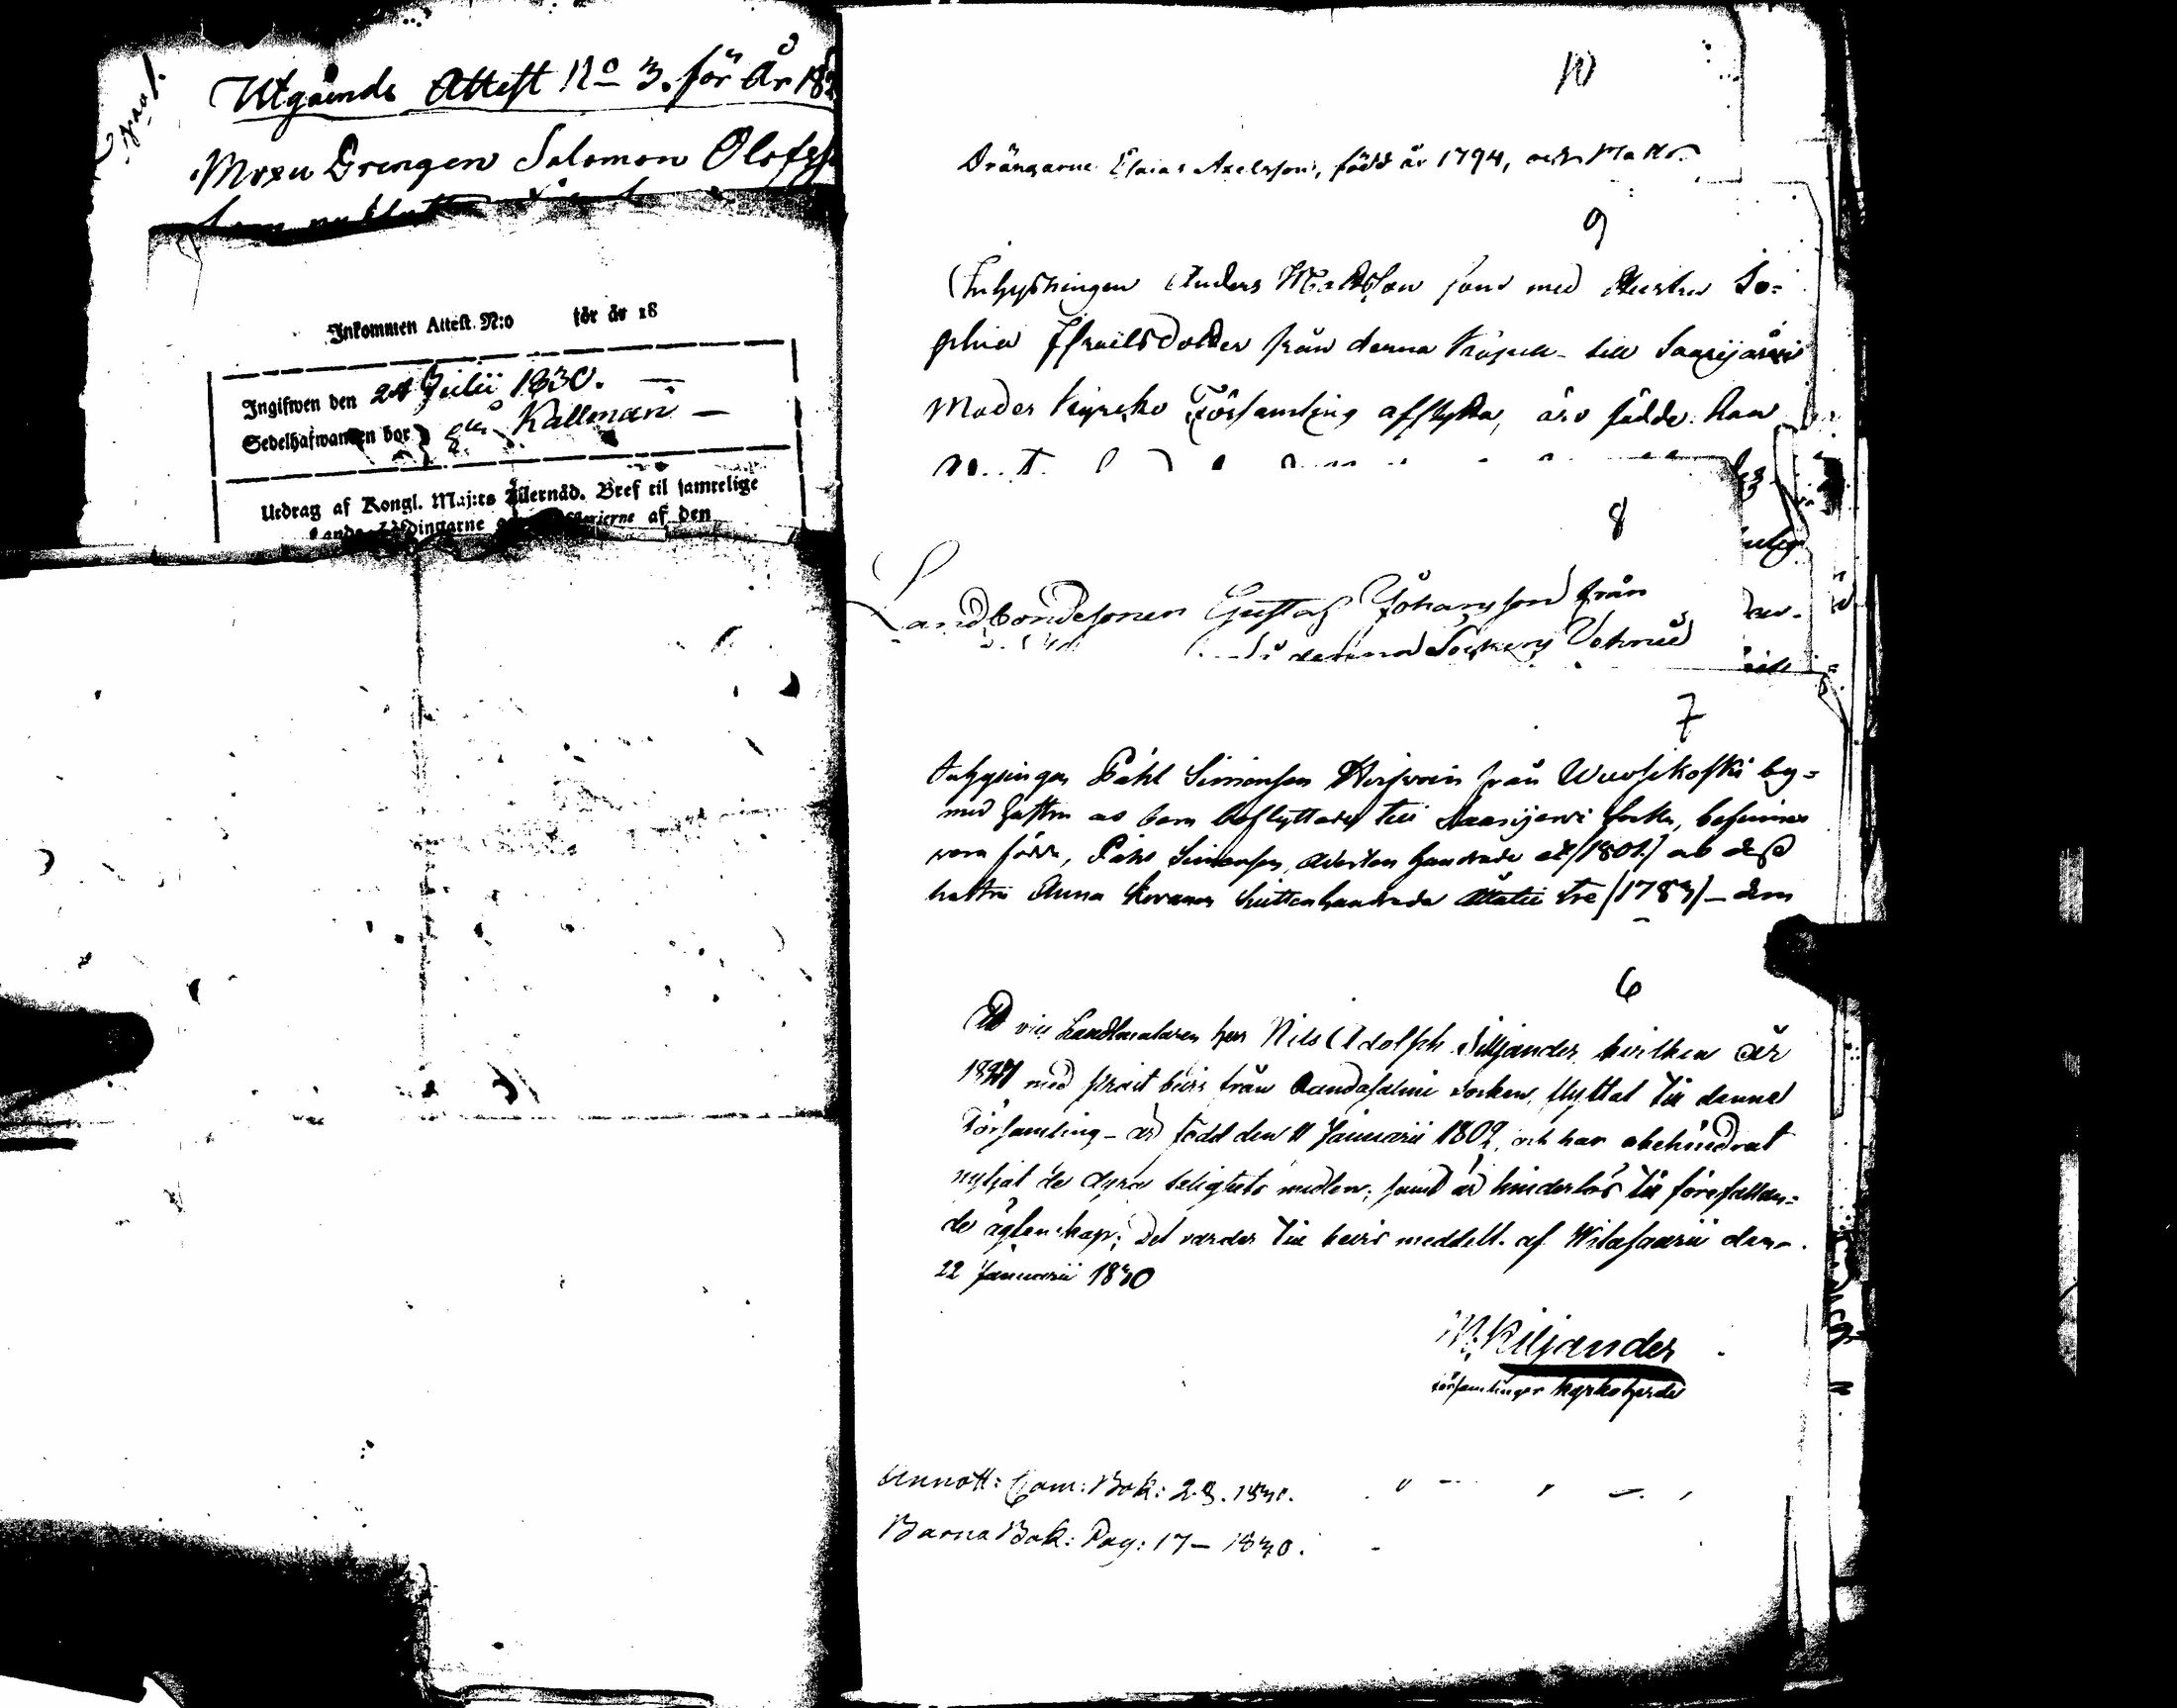 Utgående Attest No 3. för År 18
Drengen Salomon Olofss
Inkommen Attest. N:o för år 18
Ingifwen den 24 Julii 1830. —
Sedelhafwanden bor Kallmari —
Utdrag af Kongl. Maj:ts Allernåd. Bref til samtelige
af den
10
Drängarne Esaias Axelsson, född år 1794, och Matts
9
Inhysningen Anders Mattsson som med Hustru So-
phia Israelsdotter från denna Kapell till Saarijärvi
Moder Kyrcko Församling afflytta, äro födde: han
8
Landbondesonen Gustaf Johansson från
denna Sockens
7
Inhysingen Påhl Simonsson från Wuosikoski by-
med hustru och barn afflyttade till Saarijerwi socken, befinnes
vara född, Påhl Simonsson, Aderton hundrade ett /1801./ och dess
hustru Anna Sjutton hundrade åttatie tre /1783/ — den
6
At vice Landtmätaren herr Nils Adolph Kiljander, hvilken år
med prest bevis från Randasalmi socken, flyttat till denna
Församling - är född den 11 Januarii 1802, och har obehindrat
nyttjat de dyra salighets medlen; samt är hinderlös till förefallan-
de ägtenskap; Det varder till bevis meddelt. af Wiitasaari den
22 Januarii 1830
M. Kiljander
församlingens kyrkoherde
Annott: Com: Bok: 28. 1830.
Barna Bok: Pag: 17 — 1830.